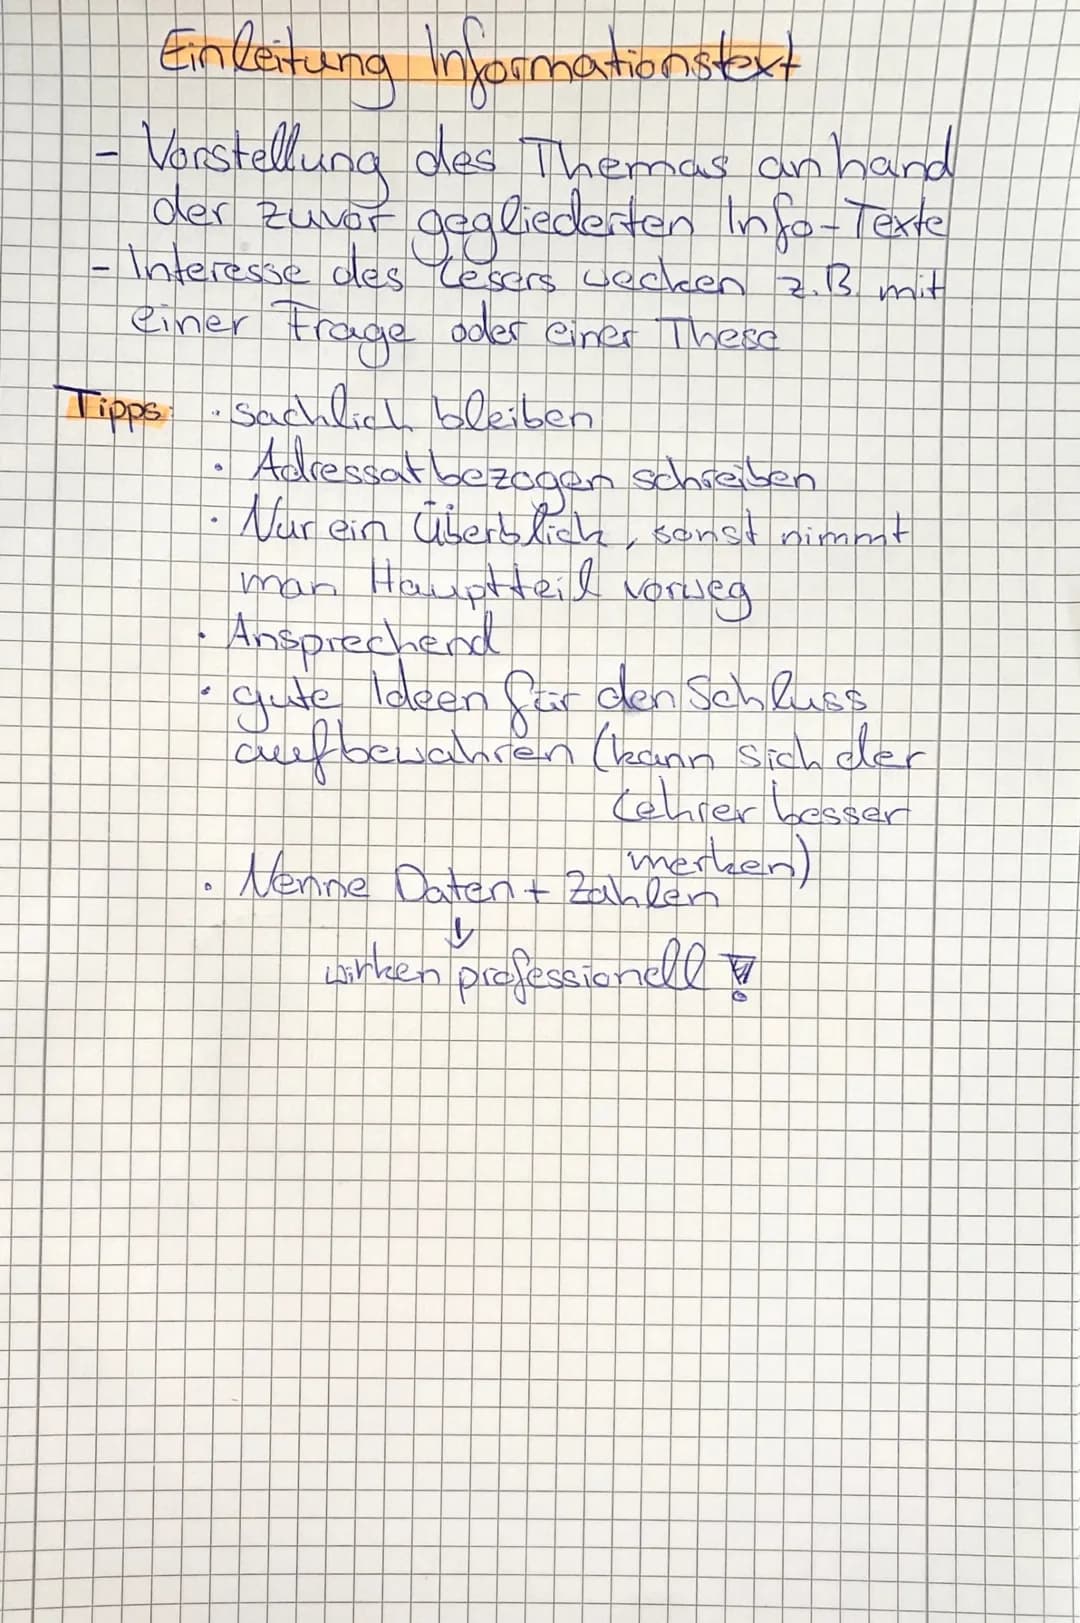 Einleitung Informationstext
- Vorstellung des Themas anhand
der zuvor gegliederten Info-Texte
- Interesse des Lesers wecken z.B. mit
einer Frage oder einer These
Tipps: • sachlich bleiben
• Adressatbezogen schreiben
• Nur ein Überblick, sonst nimmt
man Hauptteil vorweg
• Ansprechend
• gute Ideen für den Schluss
aufbewahren (kann sich der
Lehrer besser
merken)
• Nenne Daten + Zahlen
↓
wirken professionell!